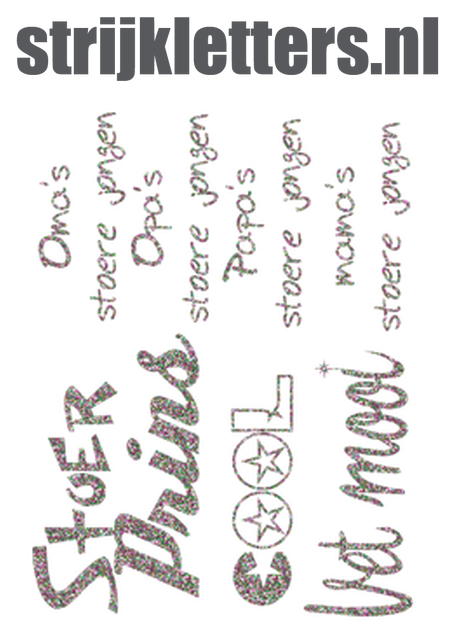 strijkletters.nl
Oma's
stoere jongen
Opa's
stoere jongen
Papa's
stoere jongen
mama's
stoere jongen
StOER
Prins
COOL
Vet mooi